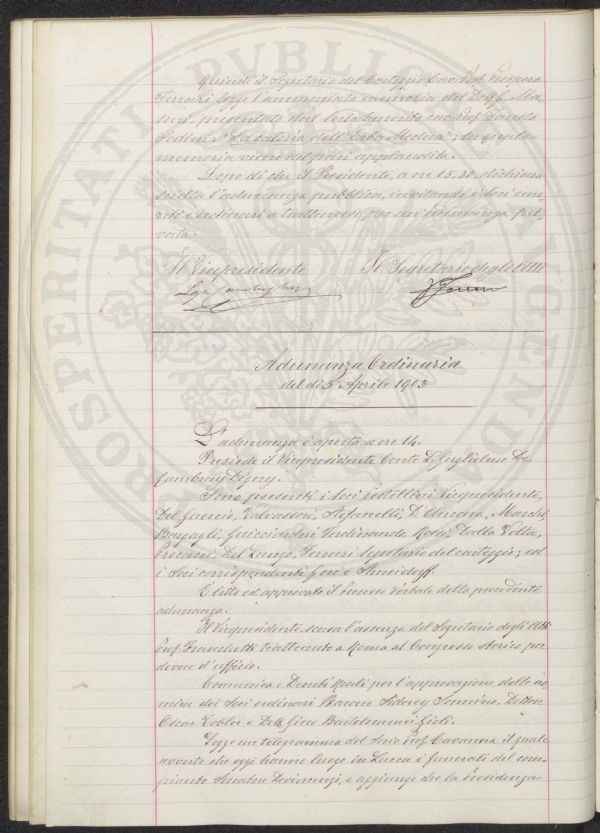 Quindi il Segretario del Carteggio Cav. Prof. Prospero
Ferrari legge l'annunziata memoria del Dott. G. Ma-
presentata dal Socio Emerito cav. Prof. Fausto
Sestini: "La caloria dell'Erba Medica"; la quale
memoria viene del pari applaudita.
Dopo di che il Presidente, a ore 15,30, dichiara
sciolta l'adunanza pubblica, invitando i Soci eme-
riti e ordinari a trattenersi per un'adunanza pri-
vata.
Il Vicepresidente Il Segretario degli Atti
Adunanza Ordinaria
del dì 5 Aprile 1903
L'adunanza è aperta a ore 14.
Presiede il Vicepresidente Conte L. Guglielmo De
Cambray Digny.
Sono presenti i Soci Vicepresidente,
Del Guercio, Valvassori, Stefanelli, D'Ancona, Marchi,
Bargagli, Guicciardini Ferdinando, Dalla Volta,
Procacci, Del Lungo, Ferrari Segretario del carteggio; ed
i Soci corrispondenti Gori e
È letto ed approvato il Processo Verbale della precedente
adunanza.
Il Vicepresidente scusa l'assenza del Segretario degli Atti
Prof. Franchetti trattenuto a Roma al Congresso Storico per
dovere d'ufficio.
Comunica i Decreti Reali per l'approvazione delle no-
mine dei Soci ordinari Barone Sidney Sonnino, Dottore
Oscar Tobler e Dott. Gino Bartolommei Gioli.
Legge un telegramma del Socio Prof. Cavanna il quale
avverte che oggi hanno luogo in Lucca i funerali del com-
pianto Senatore Devincenzi, e aggiunge che la Presidenza
PROSPERITATI PVBLICAE AVGENDAE